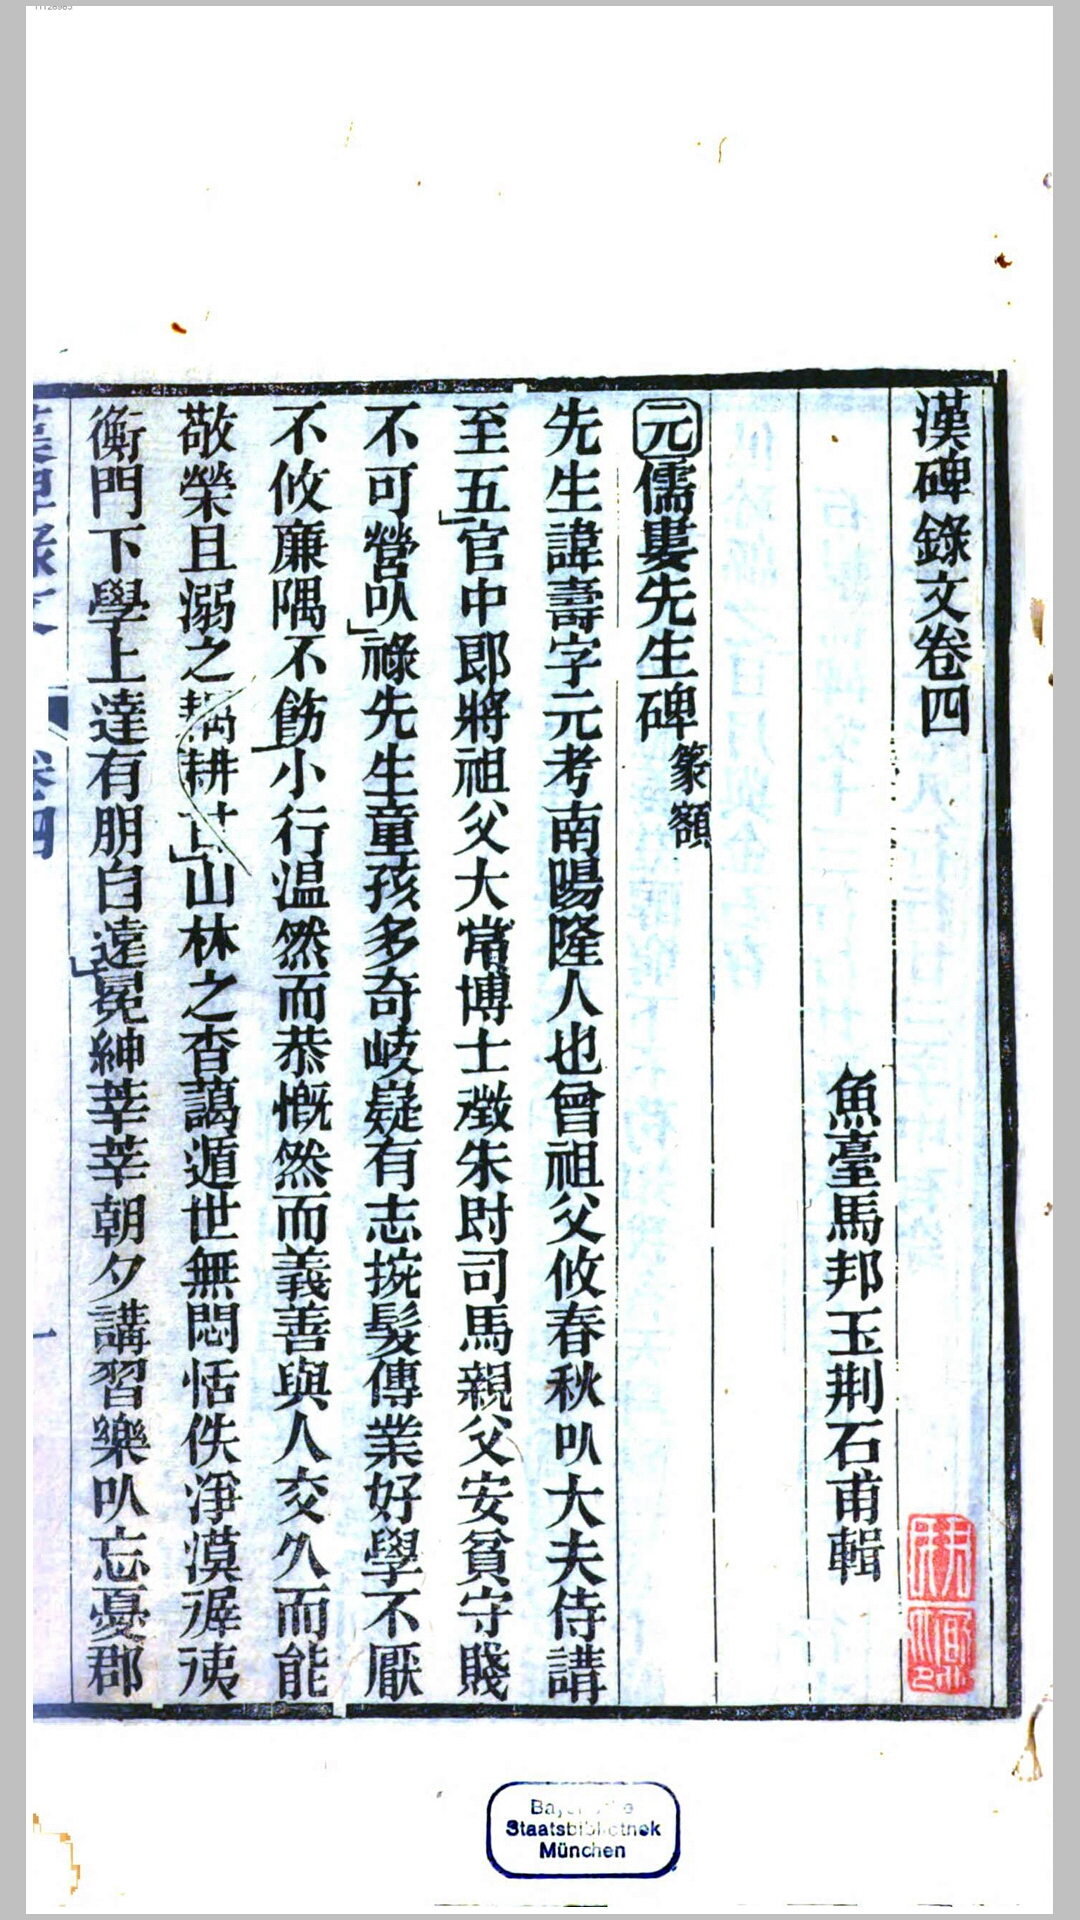 漢碑錄文卷四
魚臺馬邦玉荆石甫輯
元儒婁先生碑 篆額
先生諱壽字元考南陽隆人也曾祖父攸春秋㕥大夫侍講
至五官中郎將祖父大常博士徵朱𡬶司馬親父安貧守賤
不可營㕥祿先生童孩多奇岐嶷有志捥髮傳業好學不厭
不攸廉隅不飭小行温然而恭慨然而義善與人交久而能
敬榮且溺之耦耕甘山林之杳藹遁世無悶恬佚淨漠徲夷
衡門下學上達有朋自遠冕紳莘莘朝夕講習樂㕥忘憂郡
漢碑錄文 卷四 一
Bayerische
Staatsbibliothek
München